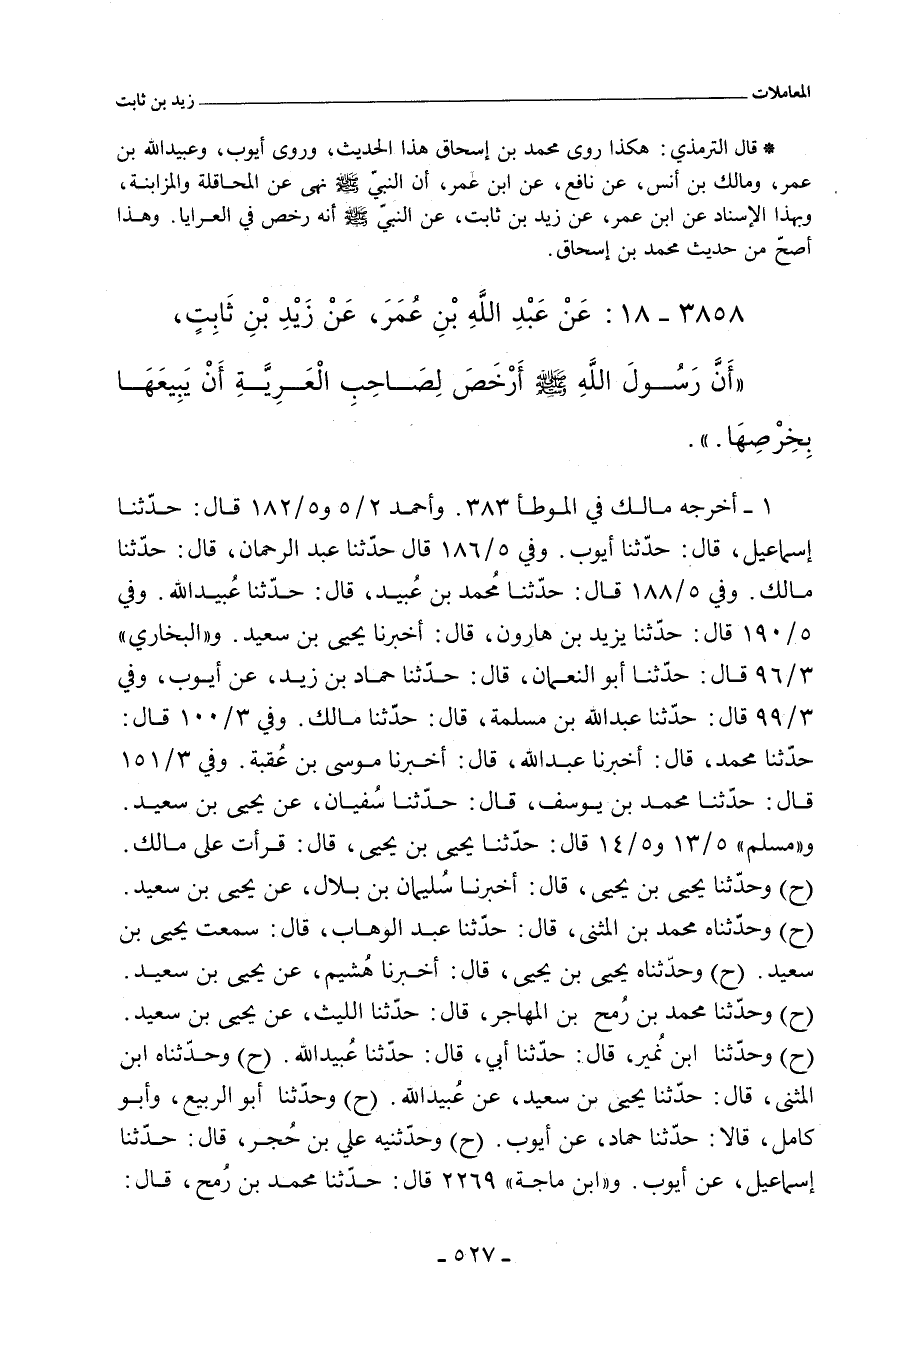 المعاملات ــــــــــــــــــــــــــــــــــــــــــــــــــ زيد بن ثابت
* قال الترمذي: هكذا روى محمد بن إسحاق هذا الحديث، وروى أيوب، وعبيدالله بن
عمر، ومالك بن أنس، عن نافع، عن ابن عمر، أن النبيّ ﷺ نهى عن المحاقلة والمزابنة،
وبهذا الإسناد عن ابن عمر، عن زيد بن ثابت، عن النبيّ ﷺ أنه رخص في العرايا. وهذا
أصحّ من حديث محمد بن إسحاق.
٣٨٥٨ ـ ١٨ : عَنْ عَبْدِ اللَّهِ بْنِ عُمَرَ، عَنْ زَيْدِ بْنِ ثَابِتٍ،
«أَنَّ رَسُولَ اللَّهِ ﷺ أَرْخَصَ لِصَاحِبِ الْعَرِيَّةِ أَنْ يَبِيعَهَا
بِخِرْصِهَا.».
١ ـ أخرجه مالك في الموطأ ٣٨٣. وأحمد ٥/٢ و١٨٢/٥ قال: حدّثنا
إسماعيل، قال: حدّثنا أيوب. وفي ١٨٦/٥ قال حدّثنا عبد الرحمان، قال: حدّثنا
مالك. وفي ١٨٨/٥ قال: حدّثنا مُحمد بن عُبيد، قال: حدّثنا عُبيدالله. وفي
١٩٠/٥ قال: حدّثنا يزيد بن هارون، قال: أخبرنا يحيى بن سعيد. و«البخاري»
٩٦/٣ قال: حدّثنا أبو النعمان، قال: حدّثنا حماد بن زيد، عن أيوب، وفي
٩٩/٣ قال: حدّثنا عبدالله بن مسلمة، قال: حدّثنا مالك. وفي ١٠٠/٣ قال:
حدّثنا محمد، قال: أخبرنا عبدالله، قال: أخبرنا موسى بن عُقبة. وفي ١٥١/٣
قال: حدّثنا محمد بن يوسف، قال: حدّثنا سُفيان، عن يحيى بن سعيد.
و«مسلم» ١٣/٥ و١٤/٥ قال: حدّثنا يحيى بن يحيى، قال: قرأت على مالك.
(ح) وحدّثنا يحيى بن يحيى، قال: أخبرنا سُليمان بن بلال، عن يحيى بن سعيد.
(ح) وحدّثناه محمد بن المثنى، قال: حدّثنا عبد الوهاب، قال: سمعت يحيى بن
سعيد. (ح) وحدّثناه يحيى بن يحيى، قال: أخبرنا هُشيم، عن يحيى بن سعيد.
(ح) وحدّثنا محمد بن رُمح بن المهاجر، قال: حدّثنا الليث، عن يحيى بن سعيد.
(ح) وحدّثنا ابن نُمير، قال: حدّثنا أبي، قال: حدّثنا عُبيدالله. (ح) وحدّثناه ابن
المثنى، قال: حدّثنا يحيى بن سعيد، عن عُبيدالله. (ح) وحدّثنا أبو الربيع، وأبو
كامل، قالا: حدّثنا حماد، عن أيوب. (ح) وحدّثنيه علي بن حُجر، قال: حدّثنا
إسماعيل، عن أيوب. و«ابن ماجة» ٢٢٦٩ قال: حدّثنا محمد بن رُمح، قال:
ـ ٥٢٧ ـ